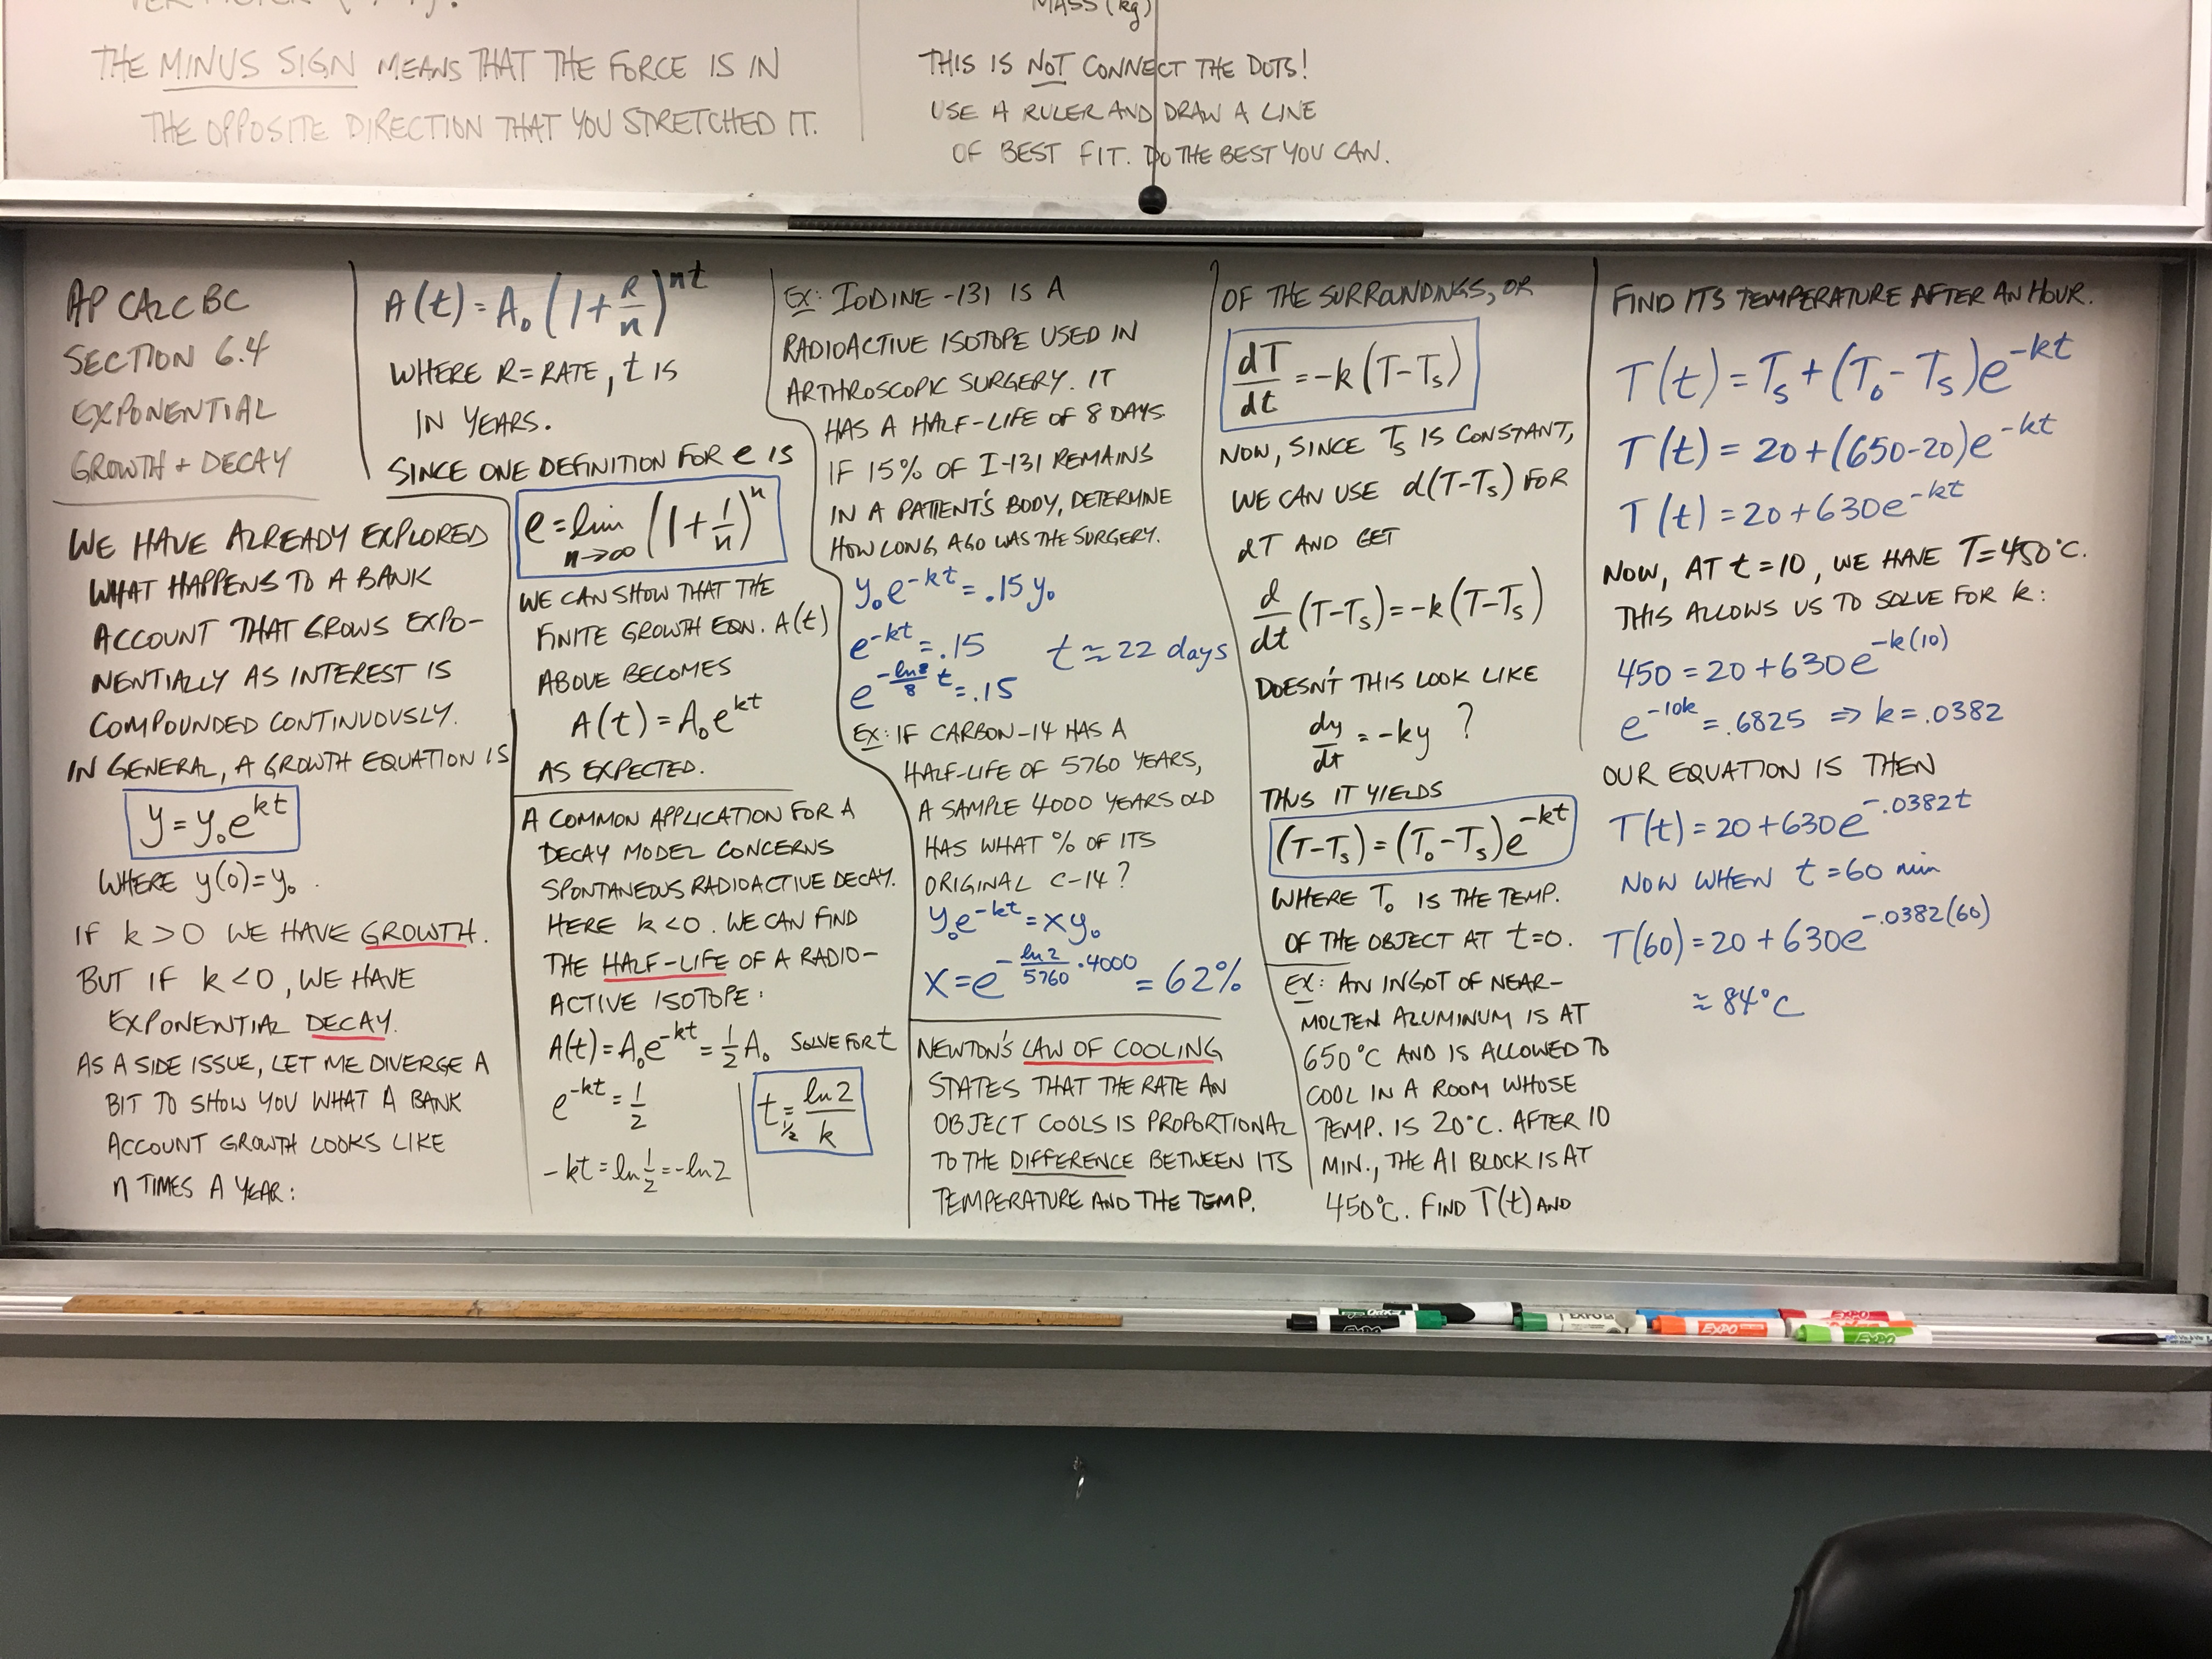 THE MINUS SIGN MEANS THAT THE FORCE IS IN
THE OPPOSITE DIRECTION THAT YOU STRETCHED IT.
MASS (kg)
THIS IS NOT CONNECT THE DOTS!
USE A RULER AND DRAW A LINE
OF BEST FIT. DO THE BEST YOU CAN.
AP CALC BC
SECTION 6.4
EXPONENTIAL
GROWTH + DECAY
WE HAVE ALREADY EXPLORED
WHAT HAPPENS TO A BANK
ACCOUNT THAT GROWS EXPO-
NENTIALLY AS INTEREST IS
COMPOUNDED CONTINUOUSLY.
IN GENERAL, A GROWTH EQUATION IS
y = y₀e^(kt)
WHERE y(0)=y₀.
IF k>0 WE HAVE GROWTH.
BUT IF k<0, WE HAVE
EXPONENTIAL DECAY.
AS A SIDE ISSUE, LET ME DIVERGE A
BIT TO SHOW YOU WHAT A BANK
ACCOUNT GROWTH LOOKS LIKE
n TIMES A YEAR:
A(t) = A₀(1+R/n)^(nt)
WHERE R=RATE, t IS
IN YEARS.
SINCE ONE DEFINITION FOR e IS
e = lim n→∞ (1+1/n)^n
WE CAN SHOW THAT THE
FINITE GROWTH EQN. A(t)
ABOVE BECOMES
A(t) = A₀e^(kt)
AS EXPECTED.
A COMMON APPLICATION FOR A
DECAY MODEL CONCERNS
SPONTANEOUS RADIOACTIVE DECAY.
HERE k<0. WE CAN FIND
THE HALF-LIFE OF A RADIO-
ACTIVE ISOTOPE:
A(t) = A₀e^(-kt) = 1/2 A₀ SOLVE FOR t
e^(-kt) = 1/2
-kt = ln 1/2 = -ln2
t_1/2 = ln2/k
EX: IODINE-131 IS A
RADIOACTIVE ISOTOPE USED IN
ARTHROSCOPIC SURGERY. IT
HAS A HALF-LIFE OF 8 DAYS
IF 15% OF I-131 REMAINS
IN A PATIENT'S BODY, DETERMINE
HOW LONG AGO WAS THE SURGERY.
y₀e^(-kt) = .15y₀
e^(-kt) = .15
e^(-ln2/8 t) = .15
t ≈ 22 days
EX: IF CARBON-14 HAS A
HALF-LIFE OF 5760 YEARS,
A SAMPLE 4000 YEARS OLD
HAS WHAT % OF ITS
ORIGINAL C-14?
y₀e^(-kt) = xy₀
x = e^(-ln2/5760 · 4000) = 62%
NEWTON'S LAW OF COOLING
STATES THAT THE RATE AN
OBJECT COOLS IS PROPORTIONAL
TO THE DIFFERENCE BETWEEN ITS
TEMPERATURE AND THE TEMP.
OF THE SURROUNDINGS, OR
dT/dt = -k(T-Ts)
NOW, SINCE Ts IS CONSTANT,
WE CAN USE d(T-Ts) FOR
dT AND GET
d/dt (T-Ts) = -k(T-Ts)
DOESN'T THIS LOOK LIKE
dy/dt = -ky ?
THUS IT YIELDS
(T-Ts) = (T₀-Ts)e^(-kt)
WHERE T₀ IS THE TEMP.
OF THE OBJECT AT t=0.
EX: AN INGOT OF NEAR-
MOLTEN ALUMINUM IS AT
650°C AND IS ALLOWED TO
COOL IN A ROOM WHOSE
TEMP. IS 20°C. AFTER 10
MIN., THE Al BLOCK IS AT
450°C. FIND T(t) AND
FIND ITS TEMPERATURE AFTER AN HOUR.
T(t) = Ts + (T₀-Ts)e^(-kt)
T(t) = 20+(650-20)e^(-kt)
T(t) = 20+630e^(-kt)
NOW, AT t=10, WE HAVE T=450°C.
THIS ALLOWS US TO SOLVE FOR k:
450 = 20+630e^(-k(10))
e^(-10k) = .6825 ⇒ k=.0382
OUR EQUATION IS THEN
T(t) = 20+630e^(-.0382t)
NOW WHEN t=60 min
T(60) = 20+630e^(-.0382(60))
≈ 84°C
EXPO
EXPO
EXPO
EXPO
EXPO